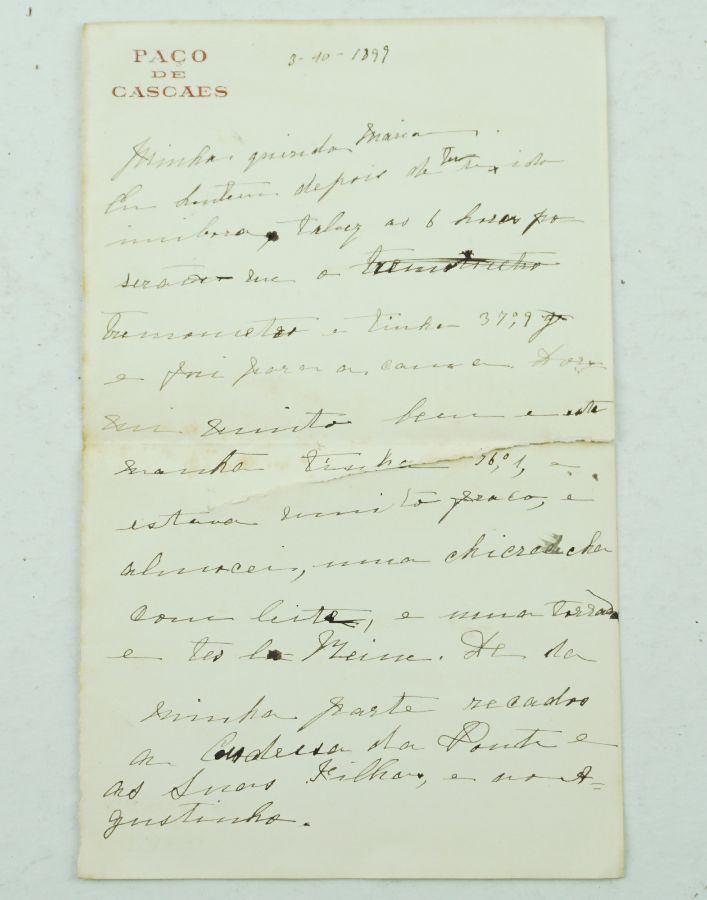 PAÇO
DE
CASCAES
3-10-1899
Minha querida Maria.
Eu hontem depois de tu ido
imbora, talvez as 6 horas po
serão me o
tremometro e tinha 37°,9
e foi para a cama Dor
mi muito bem e esta
manhã tinha 36°,1, e
estava muito fraco, e
almocei, uma chicra cha
com leite, e uma torrada
e
De da
minha parte recados
a Condessa da Ponte e
as Suas Filhas, e ao A-
gustinho.